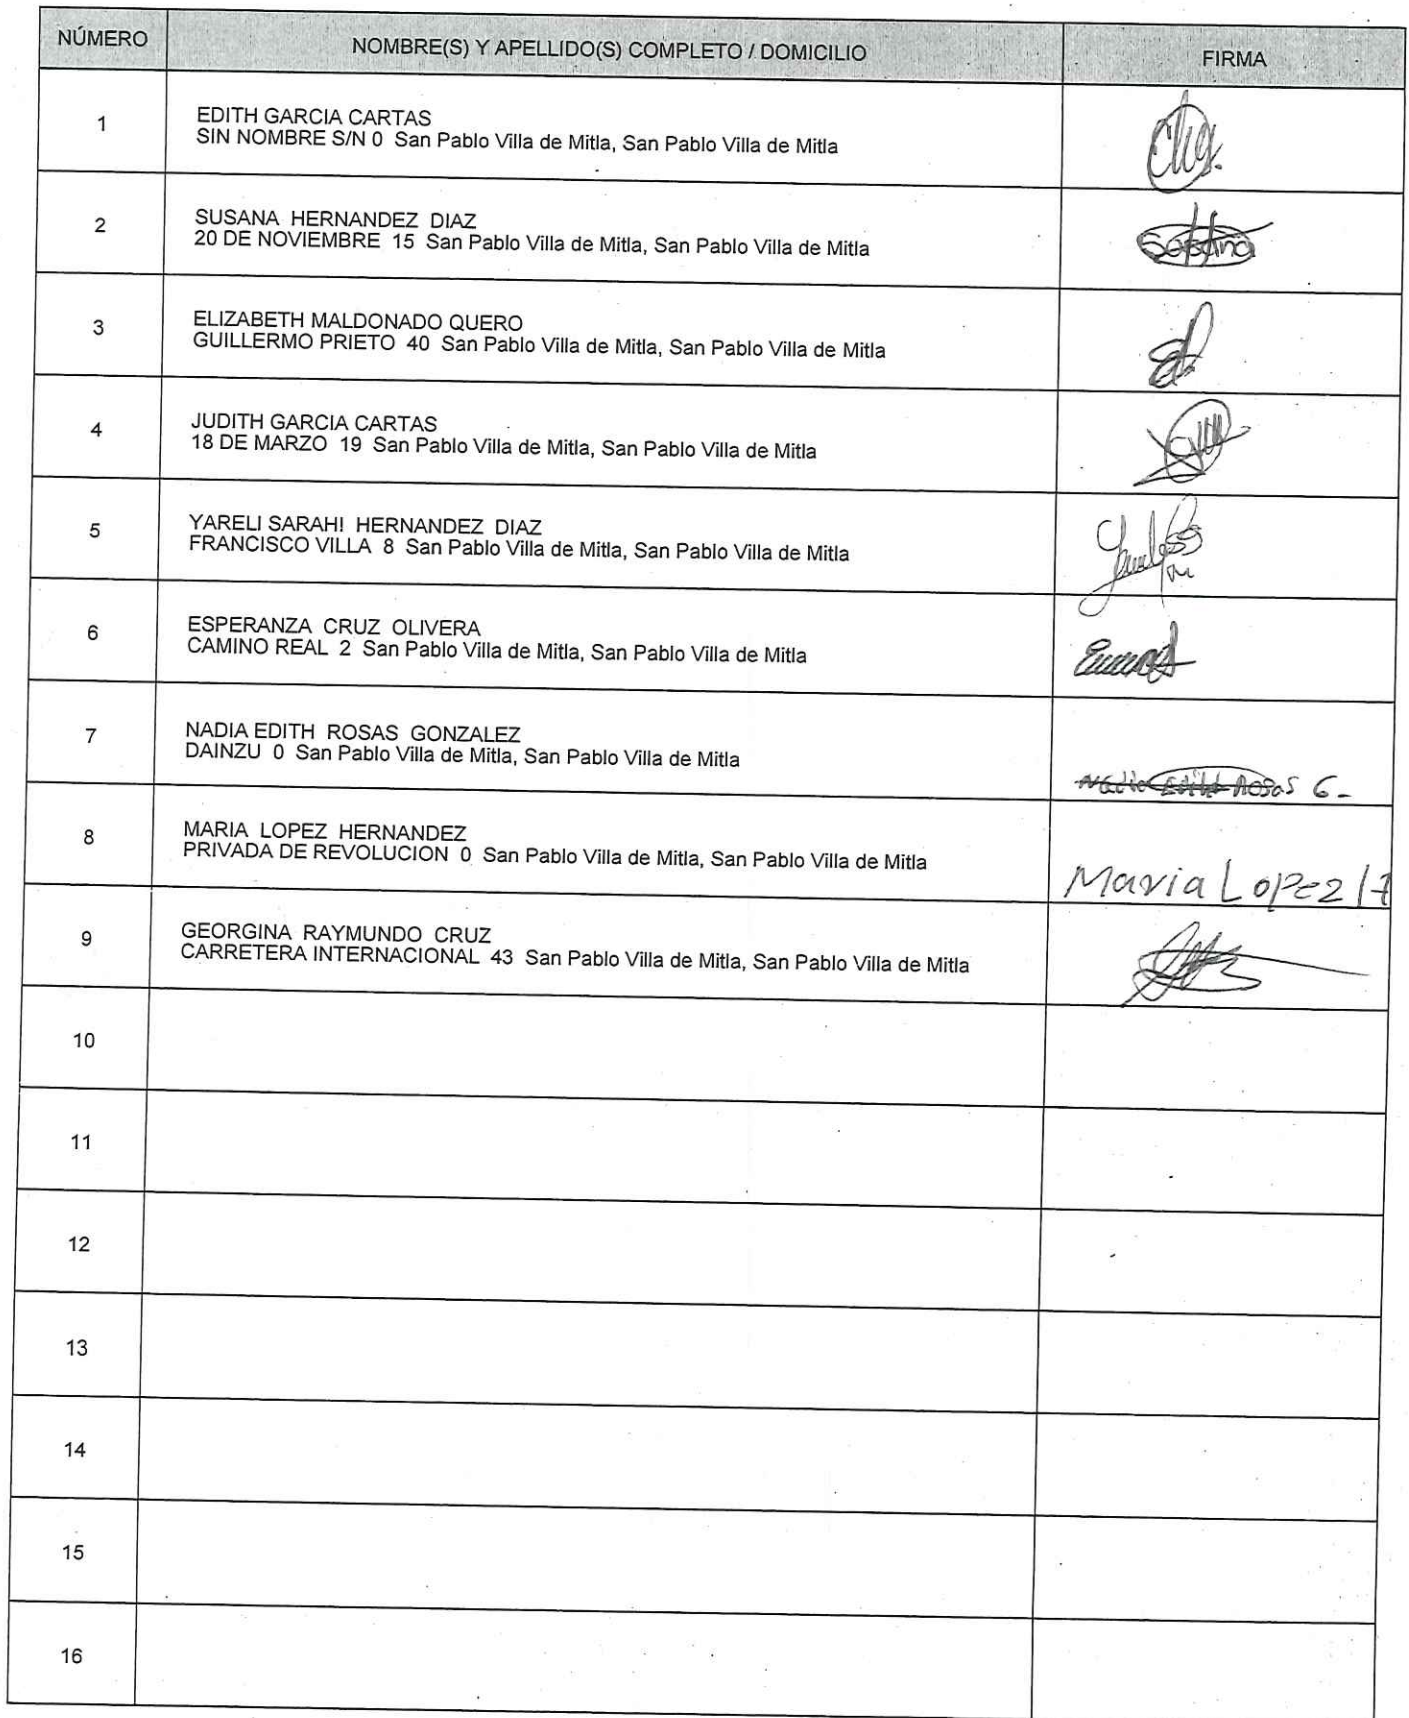 NÚMERO NOMBRE(S) Y APELLIDO(S) COMPLETO / DOMICILIO FIRMA
1 EDITH GARCIA CARTAS
SIN NOMBRE S/N 0 San Pablo Villa de Mitla, San Pablo Villa de Mitla
2 SUSANA HERNANDEZ DIAZ
20 DE NOVIEMBRE 15 San Pablo Villa de Mitla, San Pablo Villa de Mitla
3 ELIZABETH MALDONADO QUERO
GUILLERMO PRIETO 40 San Pablo Villa de Mitla, San Pablo Villa de Mitla
4 JUDITH GARCIA CARTAS
18 DE MARZO 19 San Pablo Villa de Mitla, San Pablo Villa de Mitla
5 YARELI SARAHI HERNANDEZ DIAZ
FRANCISCO VILLA 8 San Pablo Villa de Mitla, San Pablo Villa de Mitla
6 ESPERANZA CRUZ OLIVERA
CAMINO REAL 2 San Pablo Villa de Mitla, San Pablo Villa de Mitla
7 NADIA EDITH ROSAS GONZALEZ
DAINZU 0 San Pablo Villa de Mitla, San Pablo Villa de Mitla
Nadia Edith Rosas G-
8 MARIA LOPEZ HERNANDEZ
PRIVADA DE REVOLUCION 0 San Pablo Villa de Mitla, San Pablo Villa de Mitla
Maria Lopez H
9 GEORGINA RAYMUNDO CRUZ
CARRETERA INTERNACIONAL 43 San Pablo Villa de Mitla, San Pablo Villa de Mitla
10
11
12
13
14
15
16